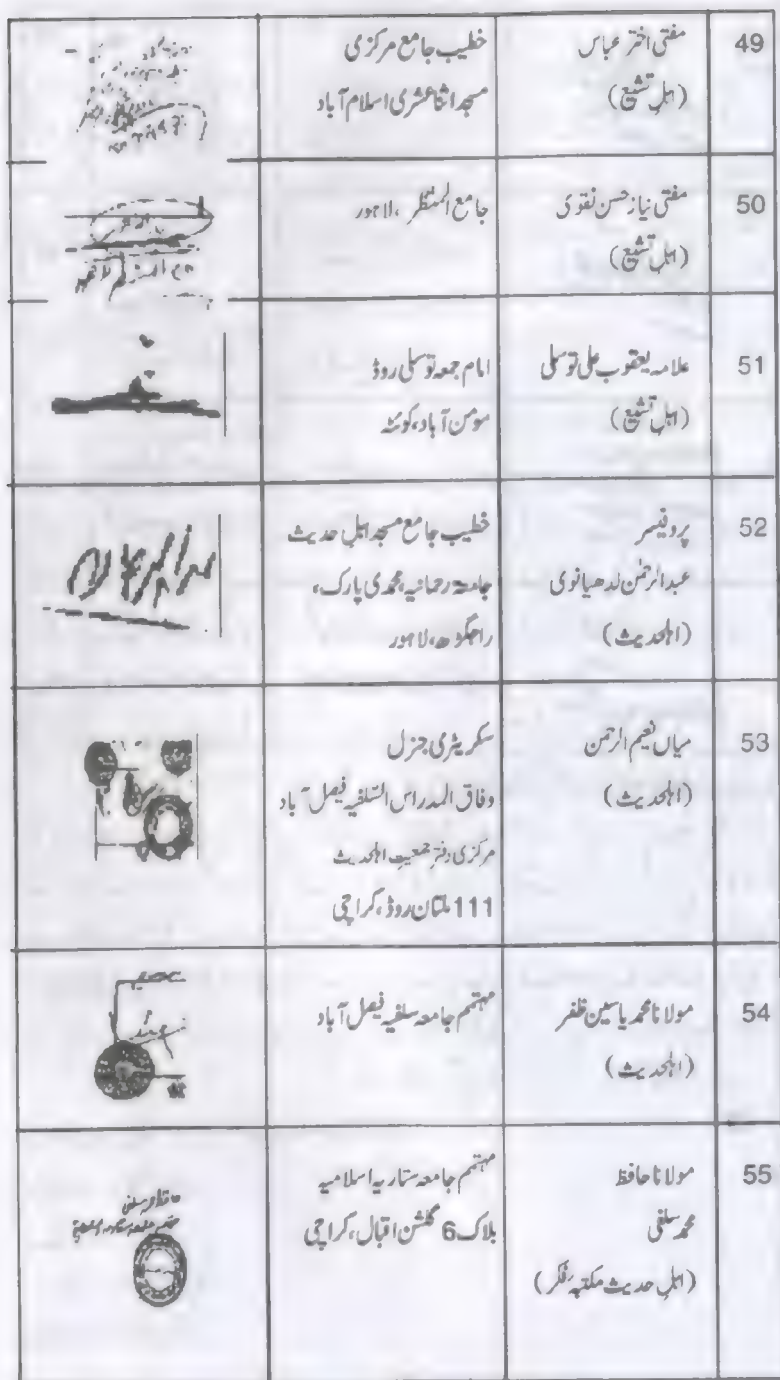 49
مفتی اختر عباس
(اہلِ تشیع)
خطیب جامع مرکزی
مسجد اثنا عشری اسلام آباد
50
مفتی نیاز حسن نقوی
(اہلِ تشیع)
جامع المنتظر، لاہور
51
علامہ یعقوب علی توسلی
(اہلِ تشیع)
امام جمعہ توسلی روڈ
مومن آباد، کوئٹہ
52
پروفیسر
عبدالرحمٰن لدھیانوی
(اہلحدیث)
خطیب جامع مسجد اہلِ حدیث
جامعۃ رحمانیہ، محمدی پارک،
راجگڑھ، لاہور
53
میاں نعیم الرحمن
(اہلحدیث)
سکریٹری جنرل
وفاق المدارس السّلفیہ فیصل آباد
مرکزی دفتر جمعیتِ اہلحدیث
111 ملتان روڈ، کراچی
54
مولانا محمد یاسین ظفر
(اہلحدیث)
مہتمم جامعہ سلفیہ فیصل آباد
55
مولانا حافظ
محمد سلفی
(اہلِ حدیث مکتبہ فکر)
مہتمم جامعہ ستاریہ اسلامیہ
بلاک 6 گلشن اقبال، کراچی